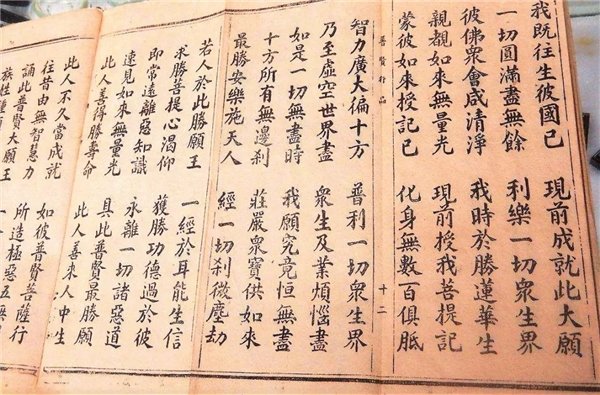 我既往生彼國已 現前成就此大願
一切圓滿盡無餘 利樂一切眾生界
彼佛眾會咸清淨 我時於勝蓮華生
親覩如來無量光 現前授我菩提記
蒙彼如來授記已 化身無數百俱胝
普賢行品 十二
智力廣大徧十方 普利一切眾生界
乃至虛空世界盡 眾生及業煩惱盡
如是一切無盡時 我願究竟恒無盡
十方所有無邊刹 莊嚴眾寶供如來
最勝安樂施天人 經一切刹微塵劫
若人於此勝願王 一經於耳能生信
求勝菩提心渴仰 獲勝功德過於彼
即常遠離惡知識 永離一切諸惡道
速見如來無量光 具此普賢最勝願
此人善得勝壽命 此人善來人中生
此人不久當成就 如彼普賢菩薩行
往昔由無智慧力 所造極惡五無
誦此普賢大願王 一
族姓種